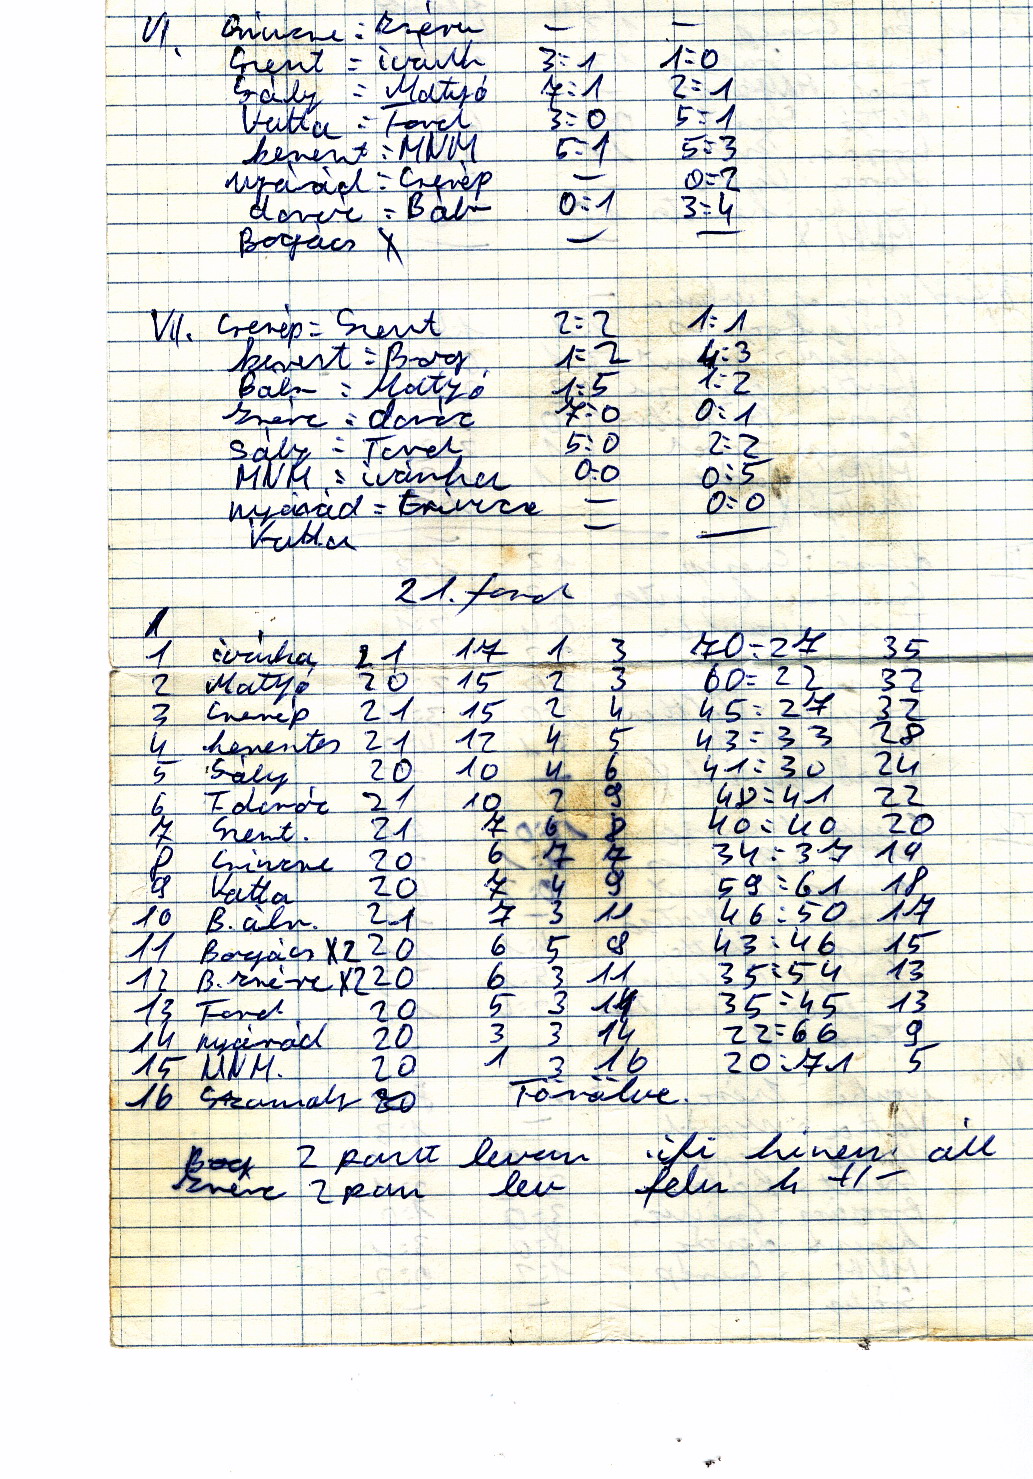 VI. Csincse = Bzérc — —
Szent = ivánk 3=1 1=0
Sály = Matyó 7=1 2=1
Vatta = Tard 3=0 5=1
kerest = MNM 5=1 5=3
nyárád = Cserép — 0=2
daróc = Bábr 0=1 3=4
Bogács X — —
VII. Cserép = Szent 2=2 1=1
kereszt = Bog 1=2 4=3
Báb = Matyó 1=5 1=2
= daróc 7=0 0=1
Sály = Tard 5=0 2=2
MNM = ivánka 0=0 0=5
nyárád = Csincse — 0=0
Vatta — —
21. ford
1 ivánka 21 17 1 3 70=27 35
2 Matyó 20 15 2 3 60=22 32
3 Cserép 21 15 2 4 45=27 32
4 keresztes 21 12 4 5 43=33 28
5 Sály 20 10 4 6 41=30 24
6 T daróc 21 10 2 9 48=41 22
7 Szent. 21 7 6 8 40=40 20
8 Csincse 20 6 7 7 34=37 19
9 Vatta 20 7 4 9 59=61 18
10 B. ábr. 21 7 3 11 46=50 17
11 Bogács X2 20 6 5 8 43=46 15
12 B. X2 20 6 3 11 35=54 13
13 Tard 20 5 3 35=45 13
14 nyárád 20 3 3 14 22=66 9
15 MNM. 20 1 3 16 20=71 5
16 20 Törölve.
Bog 2 pont levan ifi hinen áll
2 pon lev feln